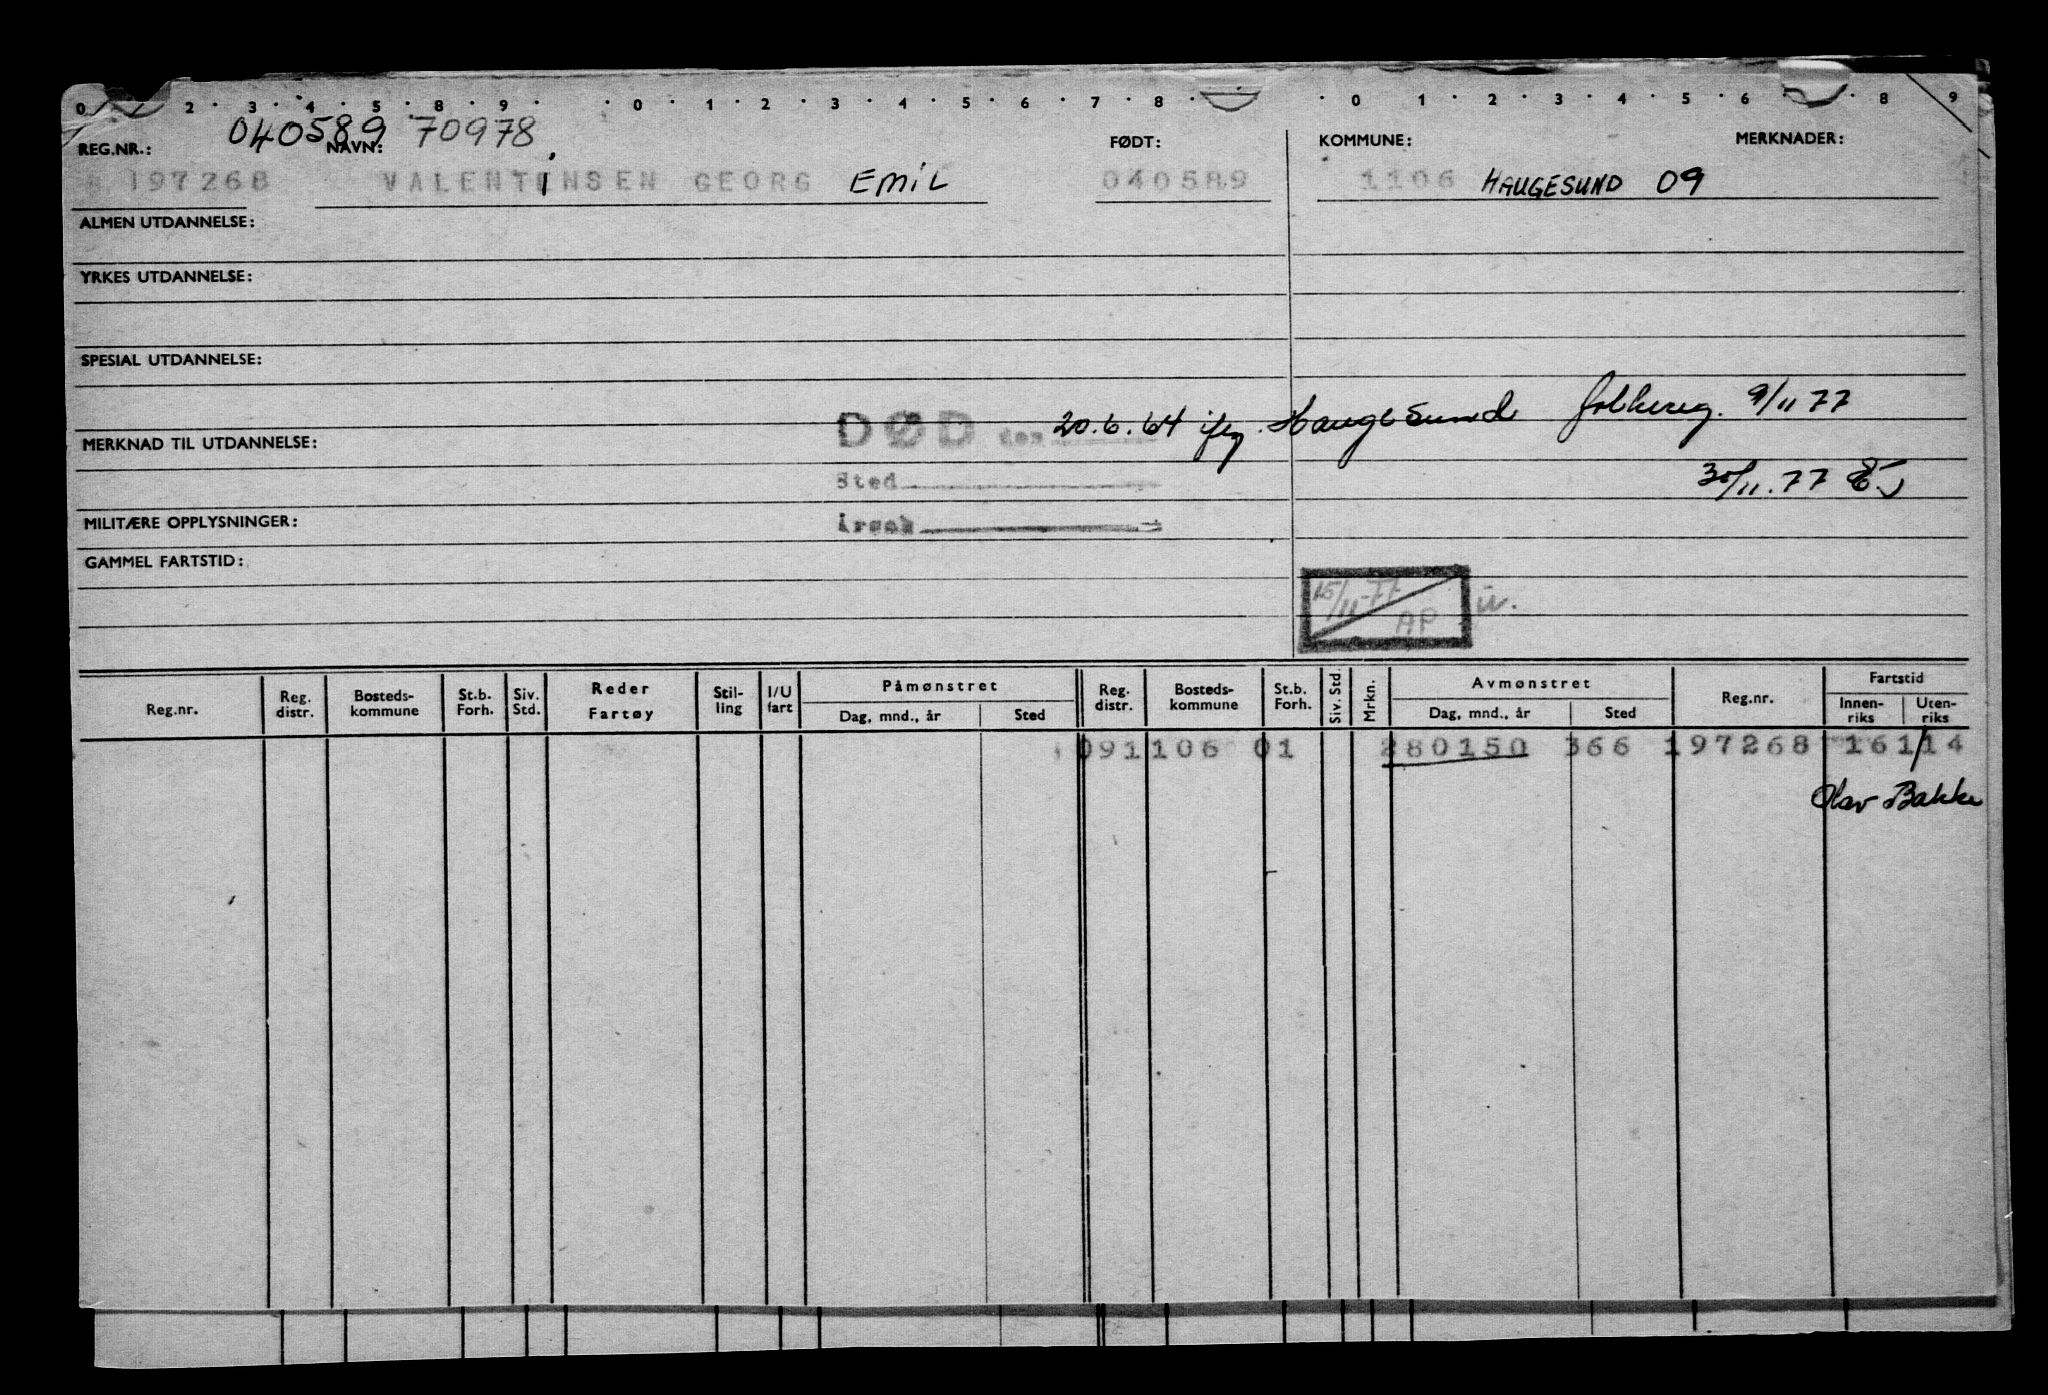 0 2 3 4 5 8 9 0 1 2 3 4 5 6 7 8 0 1 2 3 4 5 6 8 9
040589 70978
REG.NR.: NAVN: FØDT: KOMMUNE: MERKNADER:
197268 VALENTINSEN GEORG EMIL 040589 1106 HAUGESUND 09
ALMEN UTDANNELSE:
YRKES UTDANNELSE:
SPESIAL UTDANNELSE:
DØD den 20.6.64 ifg. Haugesund folkereg. 9/11 77
MERKNAD TIL UTDANNELSE:
Sted 30/11.77 EJ
MILITÆRE OPPLYSNINGER: Årsak
GAMMEL FARTSTID:
15/11-77 AP u.
Reg.nr. Reg. distr. Bosteds- kommune St.b. Forh. Siv. Std. Reder Fartøy Stil- ling I/U fart Påmønstret Dag, mnd., år Sted Reg. distr. Bosteds- kommune St.b. Forh. Siv. Std. Mrkn. Avmønstret Dag, mnd., år Sted Reg.nr. Fartstid Innen- riks Uten- riks
091106 01 280150 366 197268 161/14
Olav Bakke